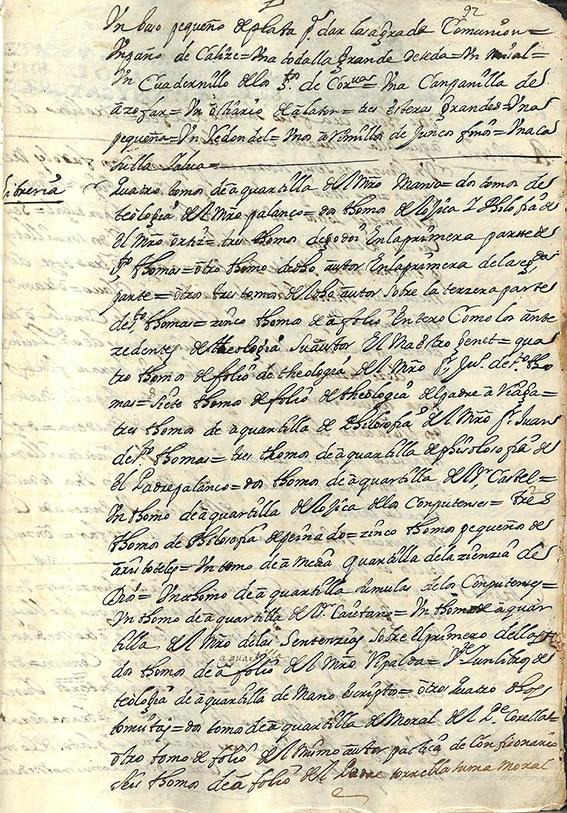 92
Un baso pequeño de plata pª dar la sagrada Comunion =
Un paño de Caliz = Una toalla grande de seda = Un misal =
Un Cuadernillo de los Sºs de = Una Campanilla de
azofar = Un Ostiario de alaton = tres esteras grandes = Una
pequeña = Un Redondel = de Juncos finos = Una ca
silla
Libreria
Quatro tomos de a quartilla del Mro = dos tomos de
teologia del Mro palanco = dos thomos de Logica y Philosfia de
el Mro = tres thomos de godoi en la primera parte de
Sto thomas = otro thomo de dho autor en la primera de la segda
parte = otros tres tomos del dho autor sobre la terzera parte
de sto thomas = zinco thomos de a folio entero como los ante
zedentes de theologia su autor el Maestro Genet = qua
tro thomos de folio de theologia del Mro fr Juº de sto tho
mas = siete thomos de folio de theologia del padre
tres thomos de a quartilla de Philosofia del Mro fr Juan
de Sto thomas = tres thomos de a quartilla de philosofia de
el Padre palanco = dos thomos de a quartilla del Castel =
Un thomo de a quartilla de Logica de los Conputenses = tres
thomos de Philosofia de = zinco thomos pequeños de
aristoteles = Un tomo de a media quartilla de la zienzia de
Dios = Un thomo de a quartilla sumulas de los Conputenses =
Un thomo de a quartilla de Caietano = Un thomo de a quar
tilla del Mro de las Sentenzias sobre el primero
a quartilla
dos thomos de a folio del Mro Ripalda = libros de
teologia de a quartilla de Mano escripto = otros quatro de
= dos tomos de a quartilla de Moral del Pe Corella =
otro tomo de folio del mismo autor pactica de Confisionario
seis thomos de a folio del Padre torrecilla suma Moral